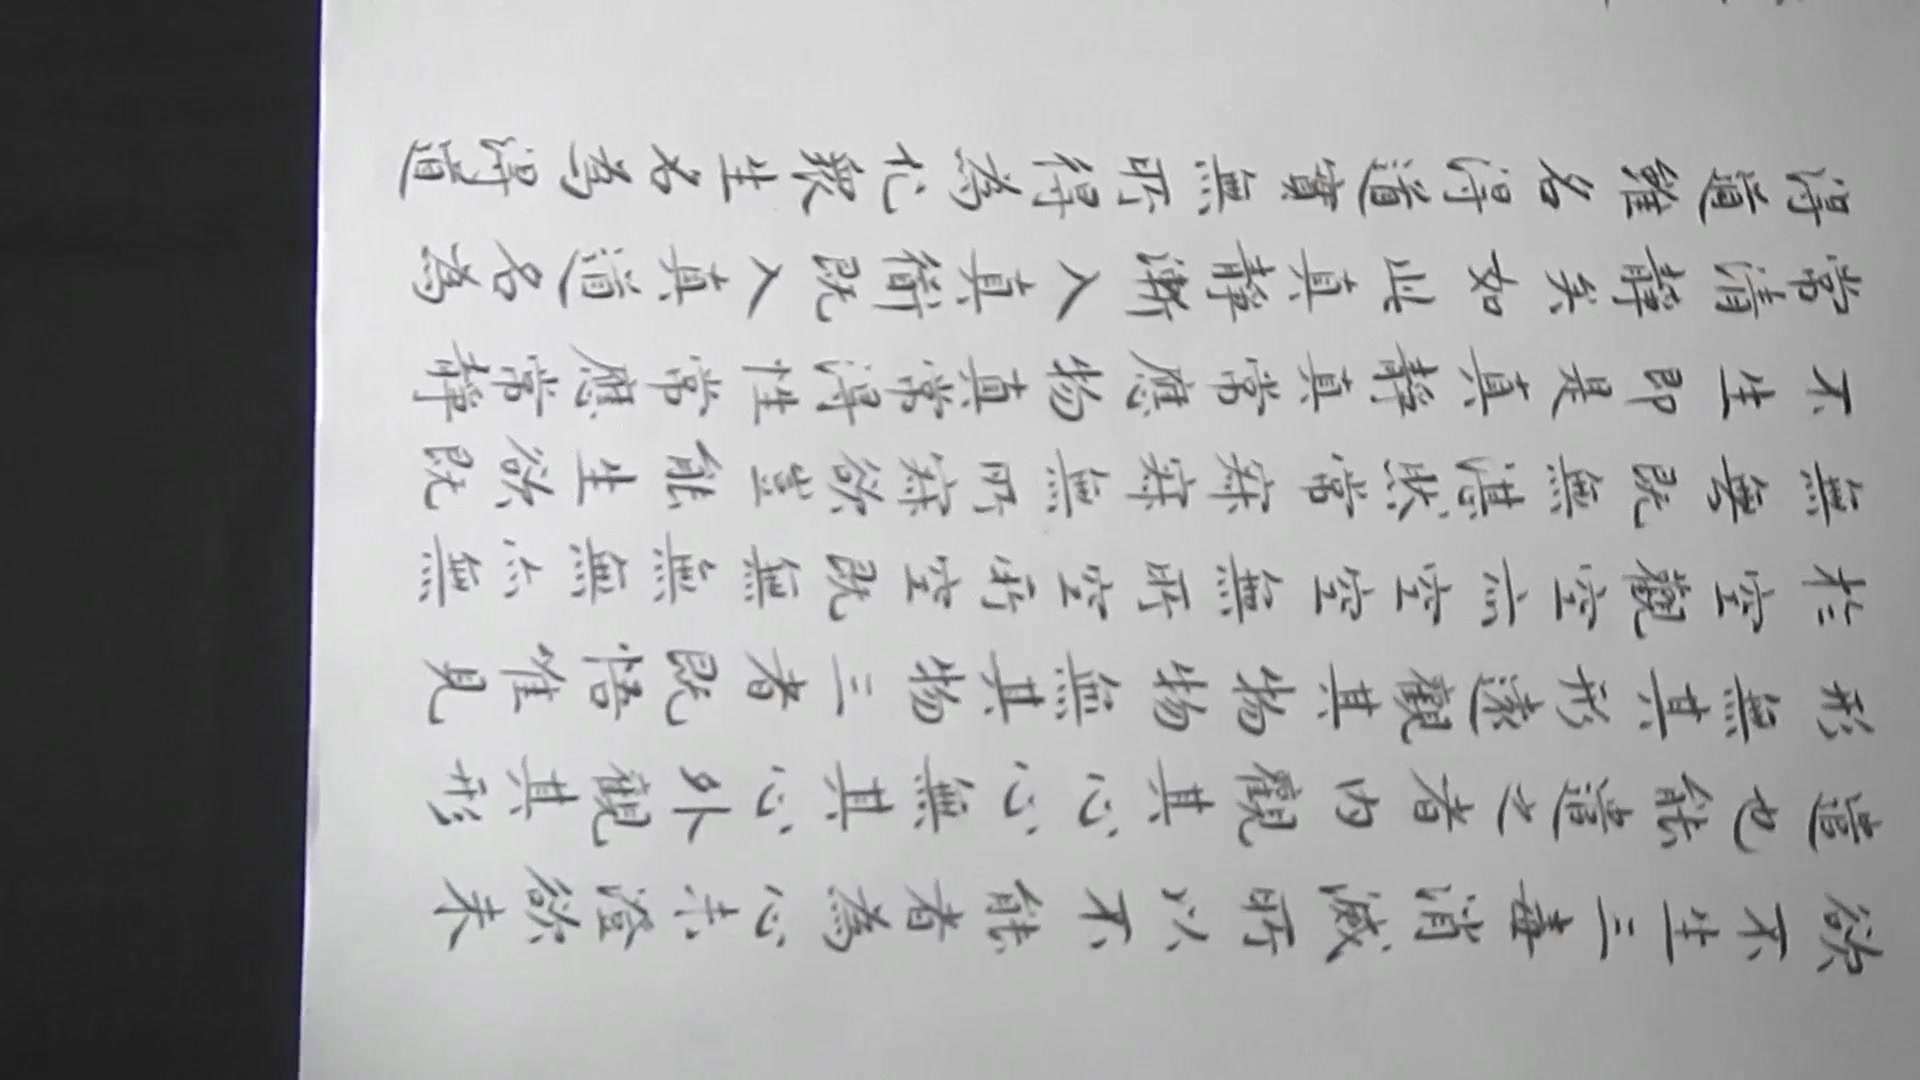 欲不生三毒消滅所以不能者為心未澄欲未
遣也能遣之者內觀其心心無其心外觀其形
形無其形遠觀其物物無其物三者既悟唯見
於空觀空亦空空無所空所空既無無無亦無
無無既無湛然常寂寂無所寂欲豈能生欲既
不生即是真靜真常應物真常得性常應常靜
常清靜矣如此真靜漸入真衜既入真道名為
得道雖名得道實無所得為化眾生名為得道